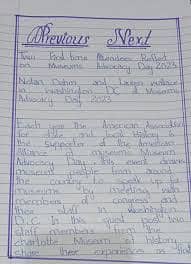 Previous Next
Two First time Attendees Reflect
on Museums Advocacy Day 2023
Nolan Dahm and Lauren Wallace
in Washington DC Museums
Advocacy Day 2023
Each year the American Association
for State and local History is
the Supporter of the American
Alliance Museums Museums
Advocacy Day this event draws
museum people from around
the country to speak up for
museums by meeting with
members of congress and
their staff in Washington
D.C. In this guest post two
staff members from the
charlotte Museum of history
share their experience as first